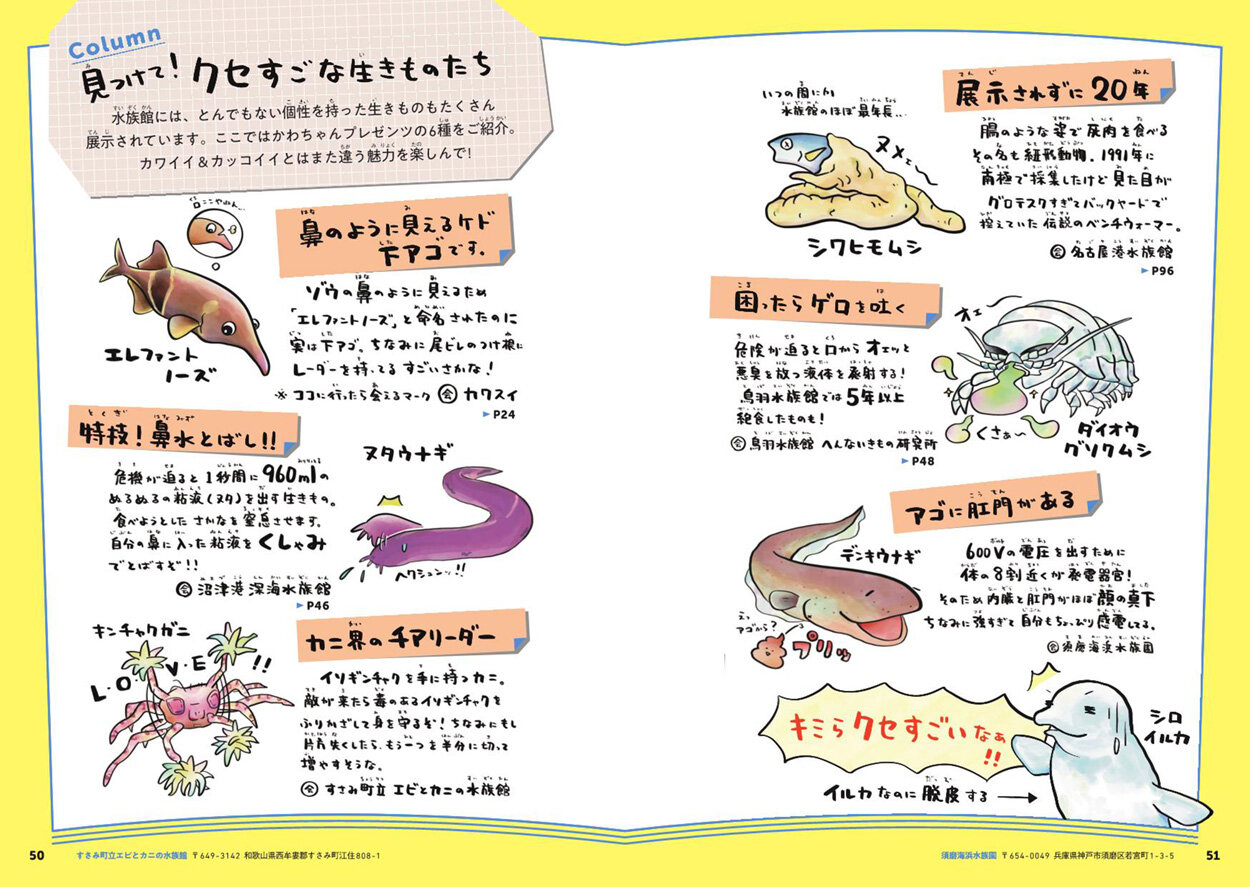 Column
見つけて！クセすごな生きものたち
水族館には、とんでもない個性を持った生きものもたくさん
展示されています。ここではかわちゃんプレゼンツの6種をご紹介。
カワイイ＆カッコイイとはまた違う魅力を楽しんで！
口ここやねん…
鼻のように見えるケド
下アゴです。
エレファント
ノーズ
ゾウの鼻のように見えるため
「エレファントノーズ」と命名されたのに
実は下アゴ。ちなみに尾ビレのつけ根に
レーダーを持ってるすごいさかな！
※ココに行ったら会えるマーク 会 カワスイ
▶P24
特技！鼻水とばし!!
危機が迫ると1秒間に960mlの
ぬるぬるの粘液（ヌタ）を出す生きもの。
食べようとしたさかなを窒息させます。
自分の鼻に入った粘液をくしゃみ
でとばすぞ!!
会 沼津港深海水族館
▶P46
ヌタウナギ
ヘクシュンッ!!
キンチャクガニ
L・O・V・E!!
カニ界のチアリーダー
イソギンチャクを手に持つカニ。
敵が来たら毒のあるイソギンチャクを
ふりかざして身を守るぞ！ちなみにもし
片方失くしたら、もう一つを半分に切って
増やすそうな。
会 すさみ町立 エビとカニの水族館
いつの間にか
水族館のほぼ最年長…
ヌメェ〜
シワヒモムシ
展示されずに20年
腸のような姿で灰肉を食べる
その名も紐形動物。1991年に
南極で採集したけど見た目が
グロテスクすぎてバックヤードで
控えていた伝説のベンチウォーマー。
会 名古屋港水族館
▶P96
困ったらゲロを吐く
危険が迫ると口からオエッと
悪臭を放つ液体を発射する！
鳥羽水族館では5年以上
絶食したものも！
会 鳥羽水族館 へんないきもの研究所
▶P48
オエ
くさぁ〜
ダイオウ
グソクムシ
アゴに肛門がある
デンキウナギ
えっ
アゴから？
プリッ
600Vの電圧を出すために
体の8割近くが発電器官！
そのため内臓と肛門がほぼ顔の真下
ちなみに強すぎて自分もちょっぴり感電してる。
会 須磨海浜水族園
キミらクセすごいなぁ
!!
シロ
イルカ
イルカなのに脱皮する→
50 すさみ町立エビとカニの水族館 〒649-3142 和歌山県西牟婁郡すさみ町江住808-1
須磨海浜水族園 〒654-0049 兵庫県神戸市須磨区若宮町1-3-5 51